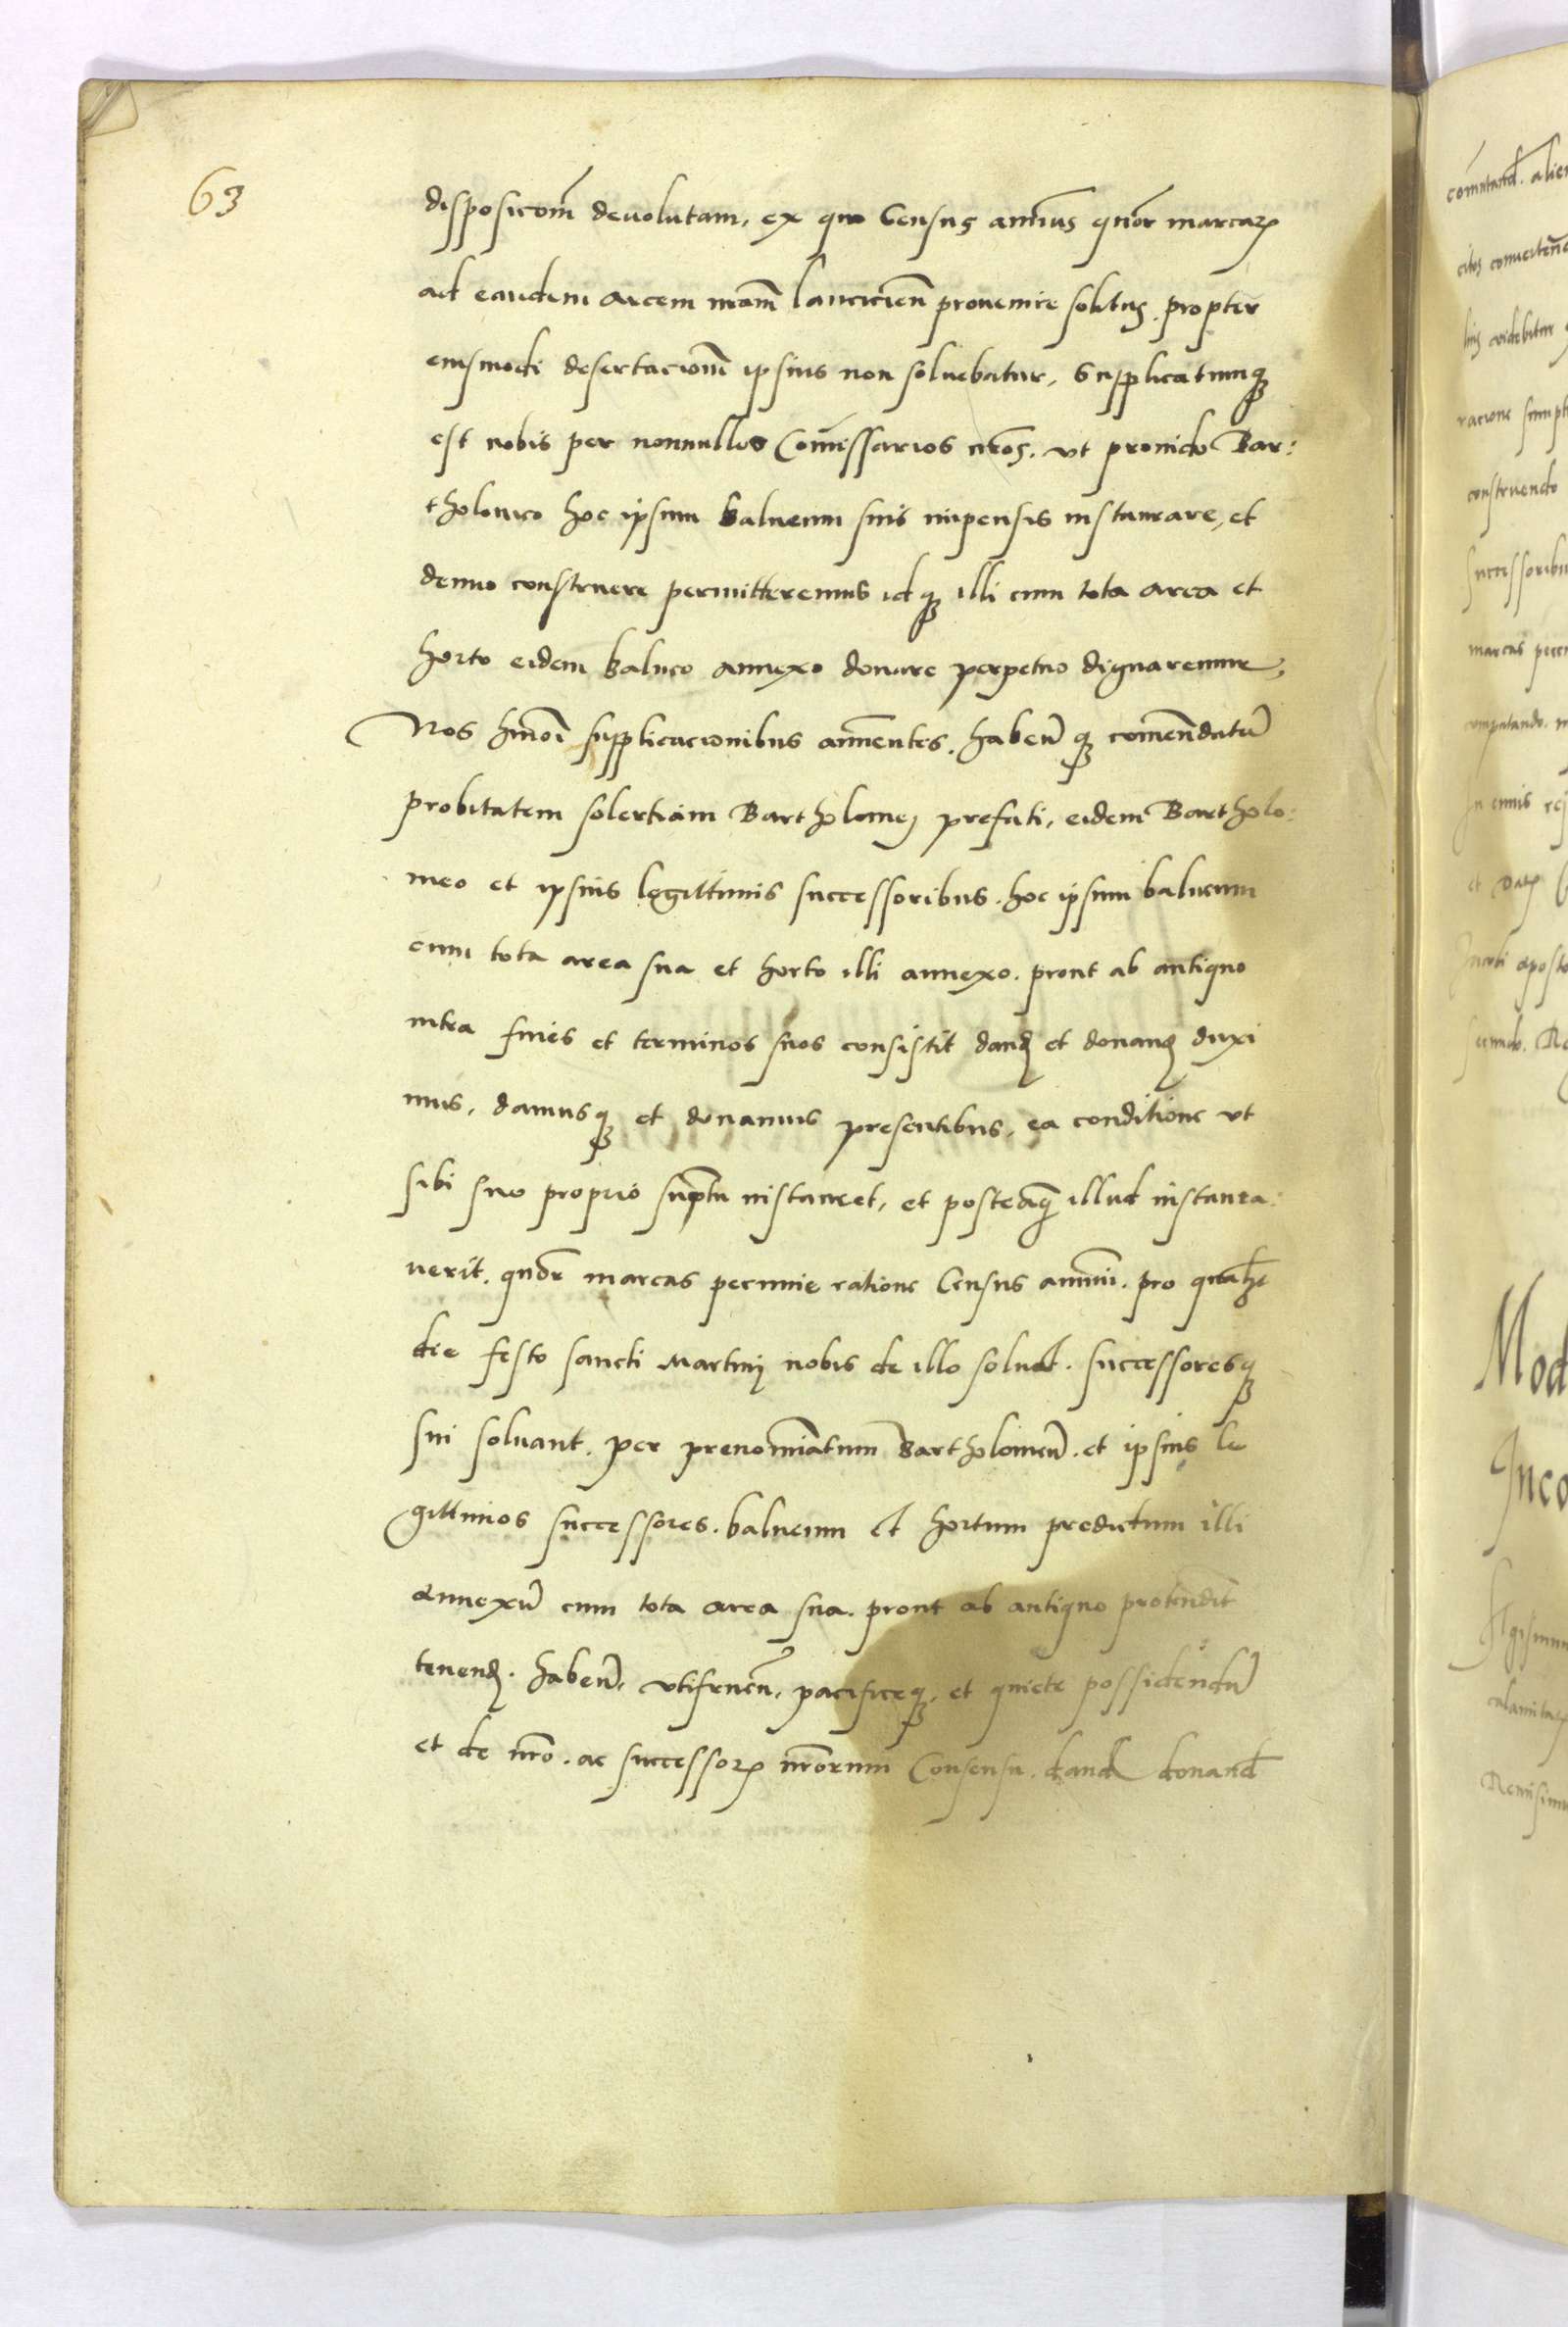 63
disposicom̃ deuolutam, ex quo Census annuus quor̃ marcaꝝ
ad eandem arcem nram̃ lanciciens̃ prouenire solitus. propter
eiusmodi desertacionem̃ ipsius non soluebatur, Supplicatumqꝫ
est nobis per nonnullos Com̃issarios nr̃os, vt prouido Bar:
tholomeo hoc ipsum balneum suis impensis instaurare, et
denuo construere permitteremus idqꝫ illi cum tota area et
horto eidem balneo annexo donare perpetuo dignaremur,
Nos hmoĩ supplicacionibus annuentes. habeñ qꝫ comendatã
probitatem solertiam Bartholomej prefati, eidem Bartholo:
meo et ipsius legittimis successoribus. hoc ipsum balneum
cum tota area sua et horto illi annexo. prout ab antiquo
intra fines et terminos suos consistit dand et donand duxi
mus, damusqꝫ et donamus presentibus, ea conditione vt
sibi suo proprio sũptu instauret, et posteaq̃ illud instaura:
uerit. quor̃ marcas pecunie ratione Census annui. pro qualȝt
die festo sancti Martinj nobis de illo soluat. successoresqꝫ
sui soluant. per prenomiñatum Bartholomeũ. et ipsius le
gittimos successores. balneum et hortum predictum illi
annexũ cum tota area sua. prout ab antiquo protendit
tenend. habeñ, vtifrueñ, pacificeqꝫ, et quiete possidendũ
et de nr̃o. ac successoꝝ nr̃orum Consensu. dand donand
com̃utand. alie
citos
lius videbitur
racione sumpt
construendo
successoribu
marcas pecu
computando.
et
apost
Mod
Inco